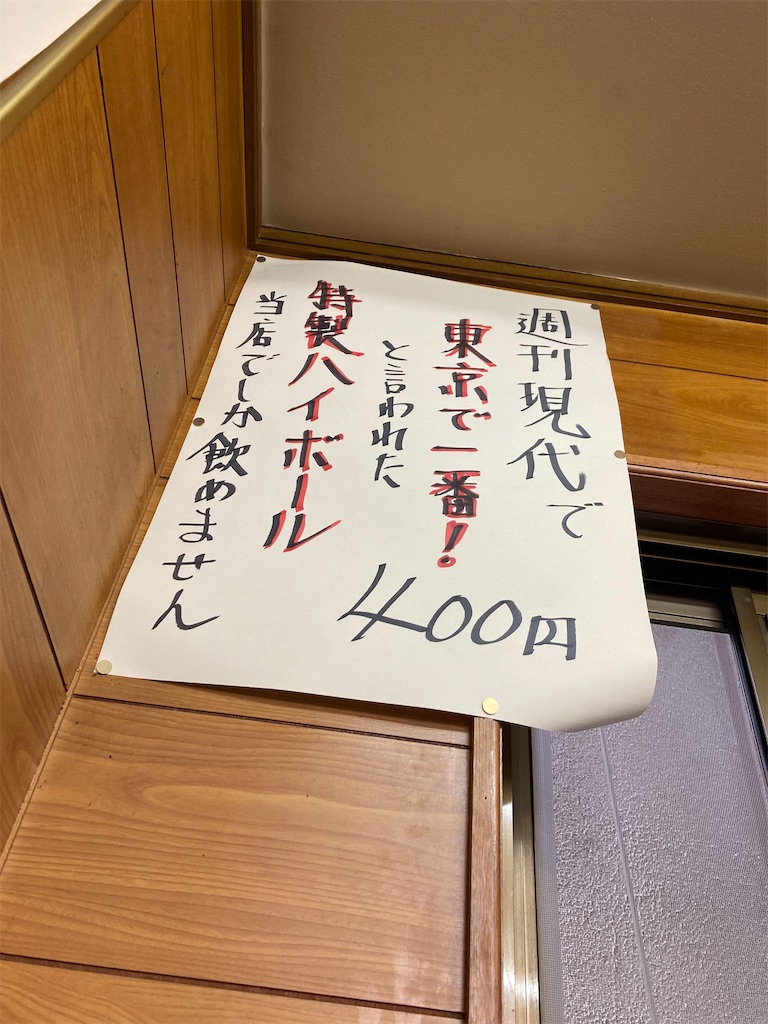 週刊現代で
東京で一番!
と言われた
特製ハイボール
当店でしか飲めません
400円